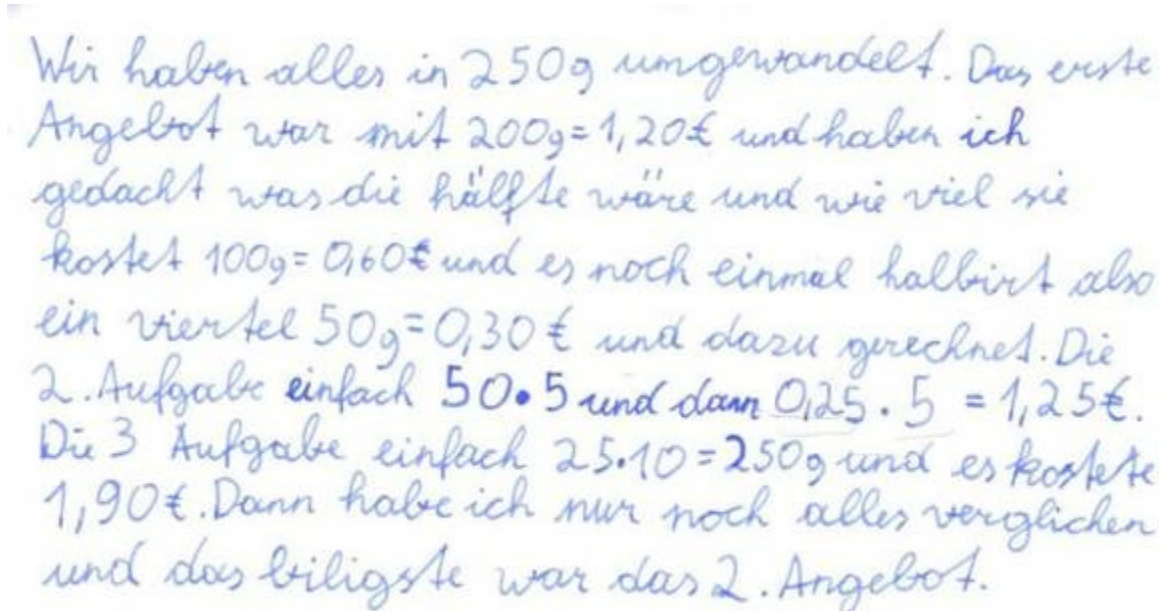 Wir haben alles in 250g umgewandelt. Das erste
Angebot war mit 200g=1,20€ und haben ich
gedacht was die hälfte wäre und wie viel sie
kostet 100g=0,60€ und es noch einmal halbirt also
ein viertel 50g=0,30€ und dazu gerechnet. Die
2. Aufgabe einfach 50•5 und dann 0,25•5 = 1,25€.
Die 3 Aufgabe einfach 25•10=250g und es kostete
1,90€. Dann habe ich nur noch alles verglichen
und das biligste war das 2. Angebot.